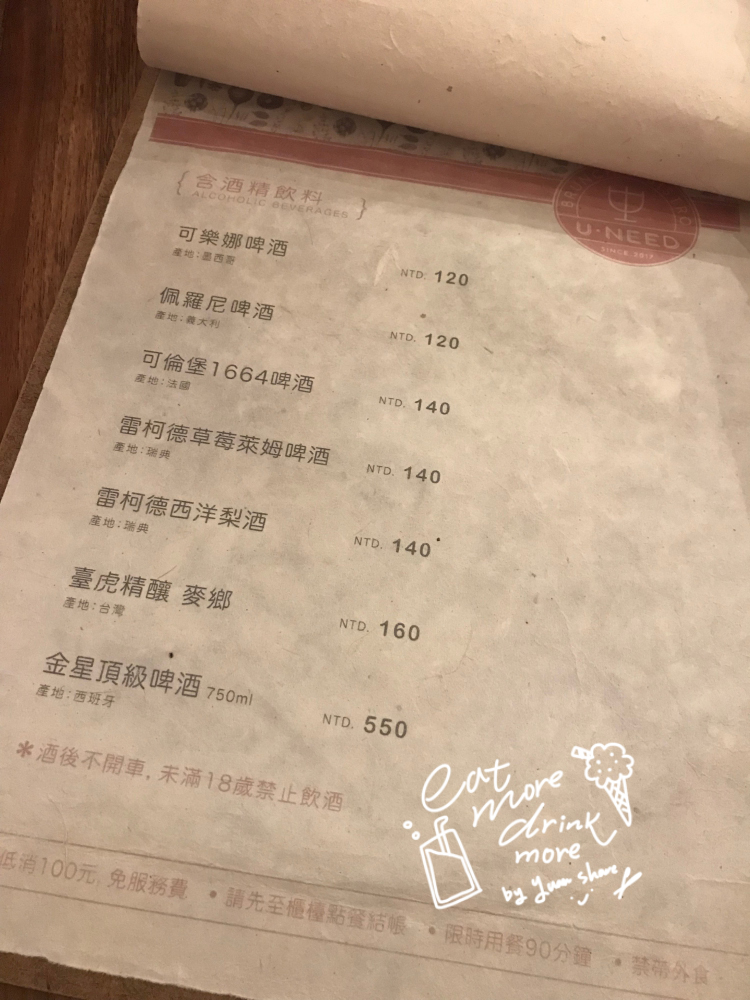 { 含酒精飲料 }
ALCOHOLIC BEVERAGES
U·NEED
可樂娜啤酒 NTD. 120
產地:墨西哥
佩羅尼啤酒 NTD. 120
產地:義大利
可倫堡1664啤酒 NTD. 140
產地:法國
雷柯德草莓萊姆啤酒 NTD. 140
產地:瑞典
雷柯德西洋梨酒 NTD. 140
產地:瑞典
臺虎精釀 麥鄉 NTD. 160
產地:台灣
金星頂級啤酒 750ml NTD. 550
產地:西班牙
*酒後不開車,未滿18歲禁止飲酒
eat
more
drink
more
by yuan share
低消100元,免服務費 •請先至櫃檯點餐結帳 •限時用餐90分鐘 •禁帶外食